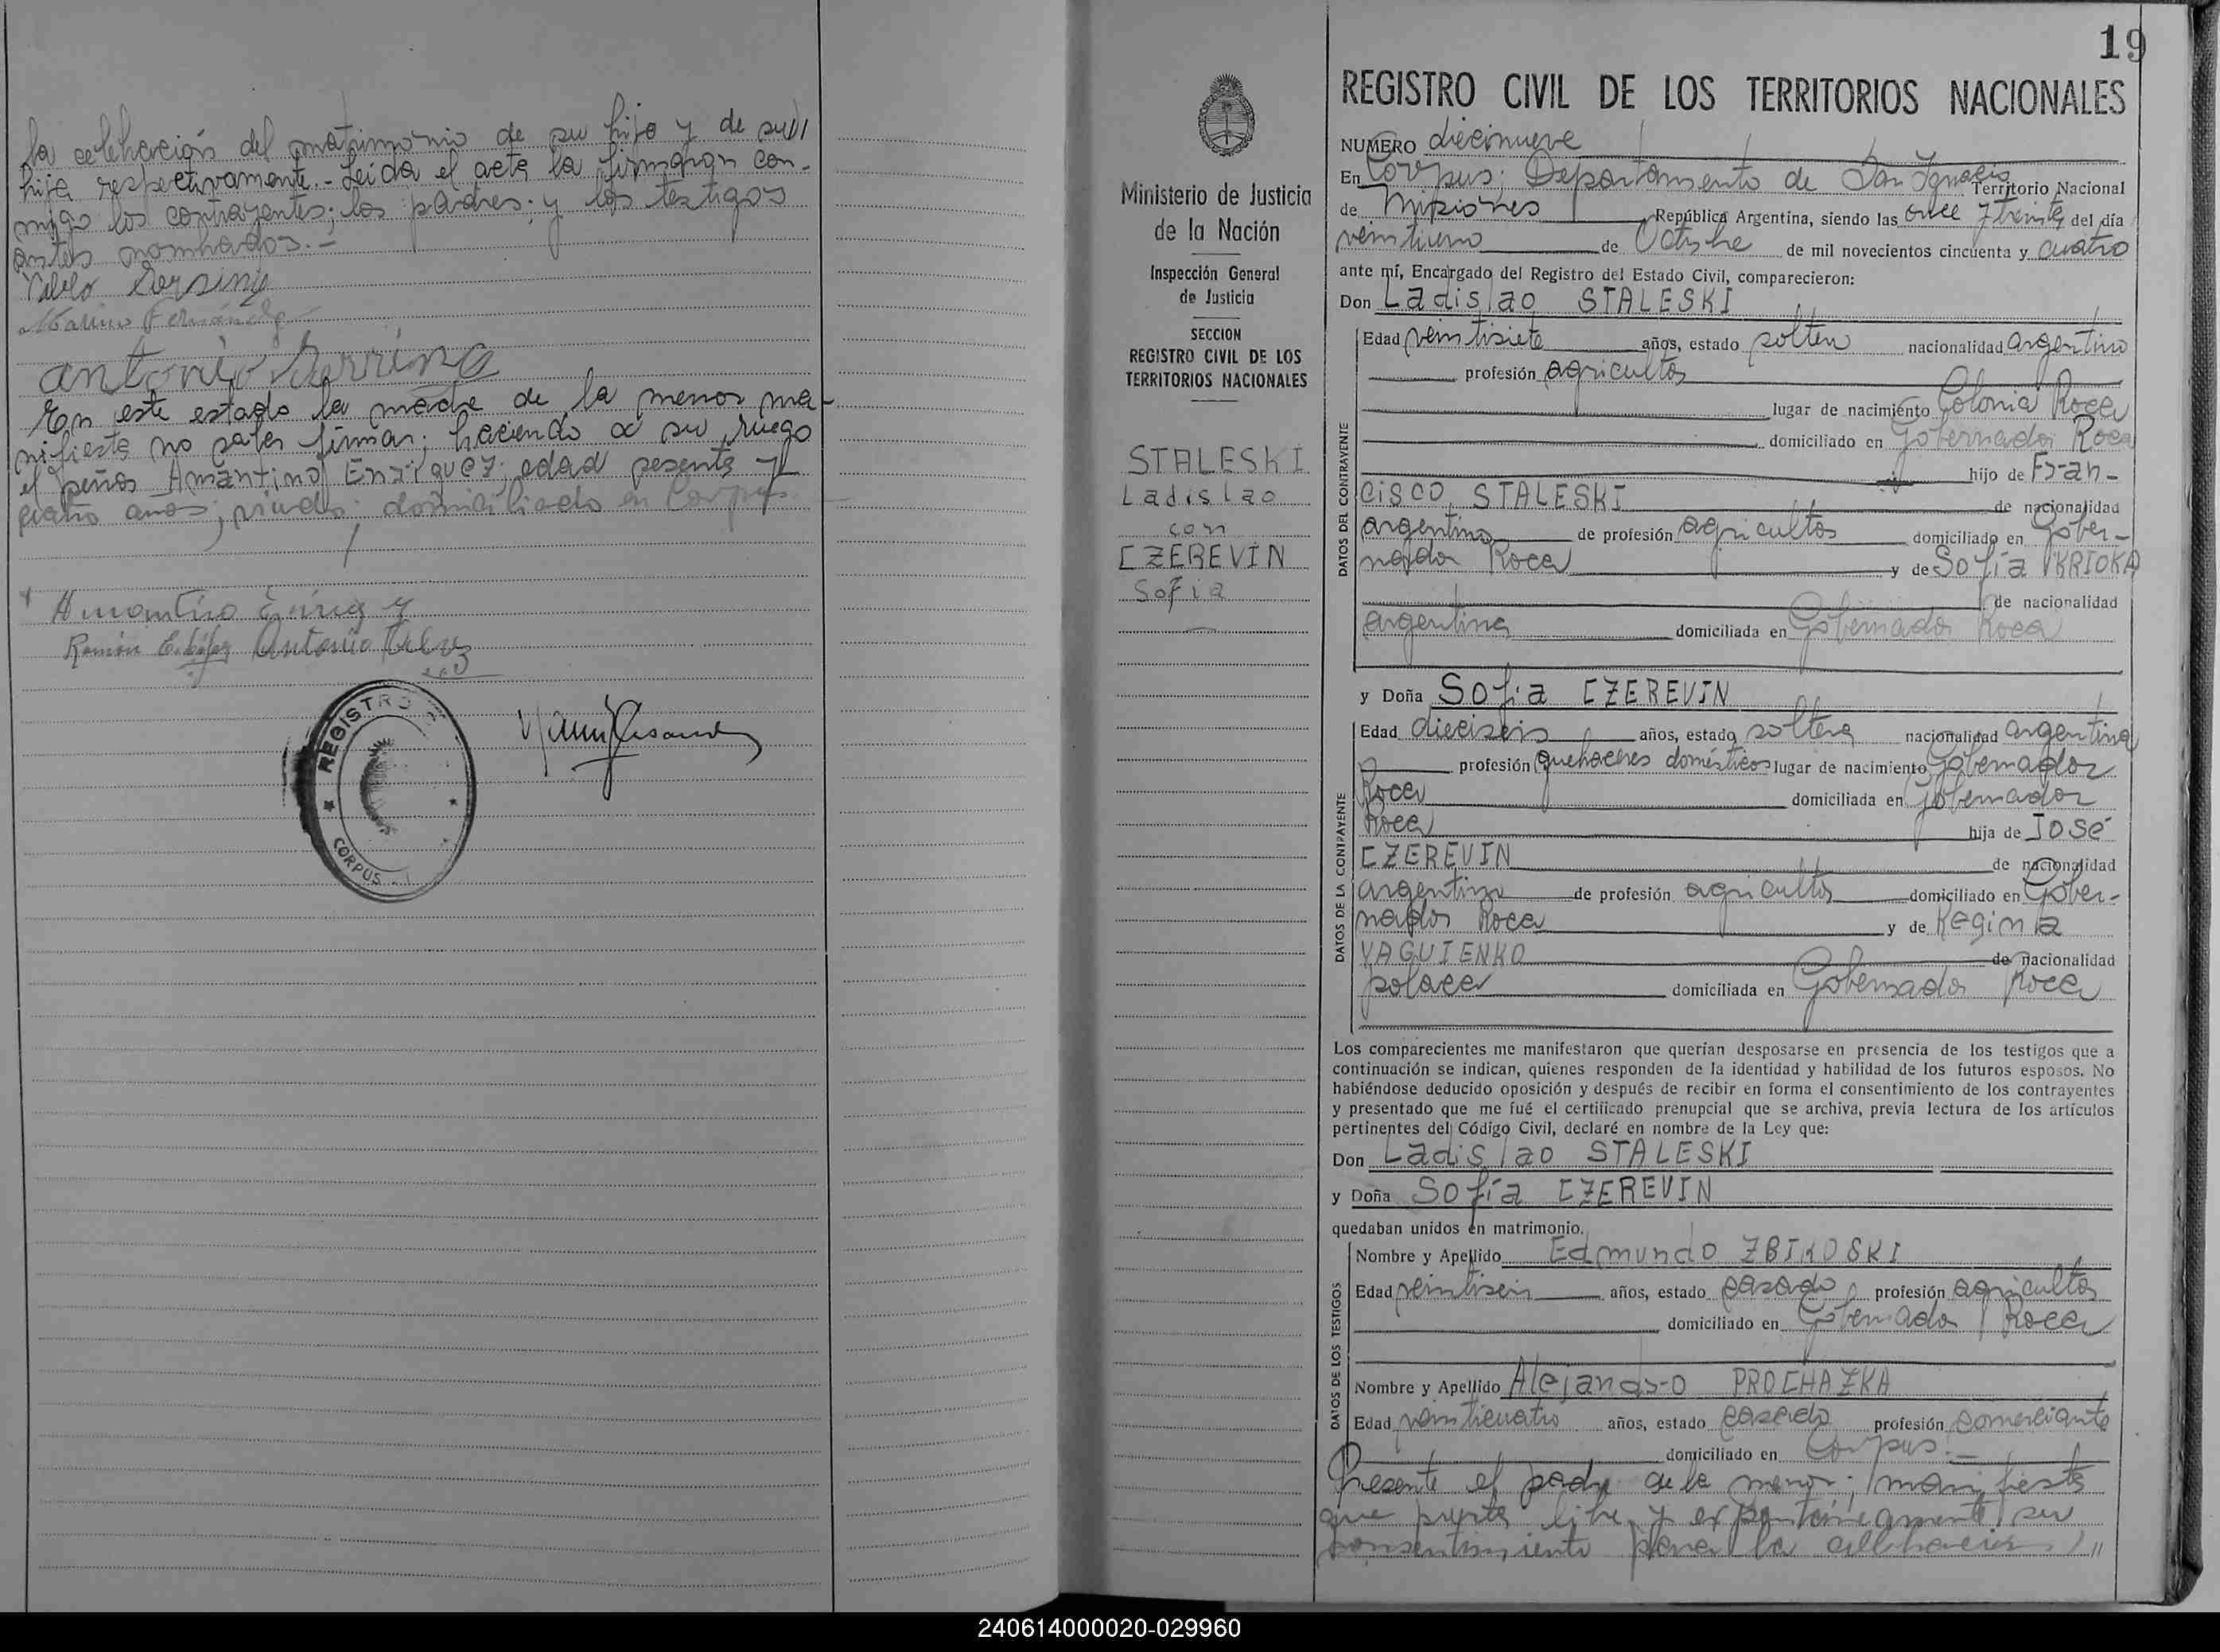 la celebración del matrimonio de su hijo y de su
hija respectivamente.- Leida el acta la firmaron con-
migo los contrayentes; los padres; y los testigos
antes nombrados.-
Pablo
Fernández
antonio
En este estado la madre de la menor ma-
nifiesta no saber firmar; haciendo a su ruego
el señor Amantino Enriquez, edad sesenta y
cuatro años; viudo; domiciliado en Corpus
Amantino
Ramón Antonio
REGISTRO
CORPUS
Ministerio de Justicia
de la Nación
Inspección General
de Justicia
SECCION
REGISTRO CIVIL DE LOS
TERRITORIOS NACIONALES
STALESKI
Ladislao
con
CZEREVIN
Sofia
19
REGISTRO CIVIL DE LOS TERRITORIOS NACIONALES
NUMERO diecinueve
En Corpus; Departamento de San Ignacio Territorio Nacional
de Misiones República Argentina, siendo las once y treinta del día
veintiuno de Octubre de mil novecientos cincuenta y cuatro
ante mí, Encargado del Registro del Estado Civil, comparecieron:
Don Ladislao STALESKI
DATOS DEL CONTRAYENTE
Edad veintisiete años, estado soltero nacionalidad argentino
profesión agricultor
lugar de nacimiento Colonia Roca
domiciliado en Gobernador Roca
hijo de Fran-
cisco STALESKI de nacionalidad
argentino de profesión agricultor domiciliado en Gober-
nador Roca y de Sofía
de nacionalidad
argentina domiciliada en Gobernador Roca
y Doña Sofia CZEREVIN
DATOS DE LA CONTRAYENTE
Edad dieciseis años, estado soltera nacionalidad argentina
profesión quehaceres domésticos lugar de nacimiento Gobernador
Roca domiciliada en Gobernador
Roca hija de José
CZEREVIN de nacionalidad
argentino de profesión agricultor domiciliado en Gober-
nador Roca y de Regina
YAGUIENKO de nacionalidad
polaca domiciliada en Gobernador Roca
Los comparecientes me manifestaron que querían desposarse en presencia de los testigos que a
continuación se indican, quienes responden de la identidad y habilidad de los futuros esposos. No
habiéndose deducido oposición y después de recibir en forma el consentimiento de los contrayentes
y presentado que me fué el certificado prenupcial que se archiva, previa lectura de los artículos
pertinentes del Código Civil, declaré en nombre de la Ley que:
Don Ladislao STALESKI
y Doña Sofía CZEREVIN
quedaban unidos en matrimonio.
DATOS DE LOS TESTIGOS
Nombre y Apellido Edmundo ZBIKOSKI
Edad veintiseis años, estado casado profesión agricultor
domiciliado en Gobernador Roca
Nombre y Apellido Alejandro PROCHAZKA
Edad veinticuatro años, estado casado profesión comerciante
domiciliado en Corpus.-
Presente el padre de la menor; manifiesta
que presta libre y expontáneamente su
consentimiento para la celebración
240614000020-029960